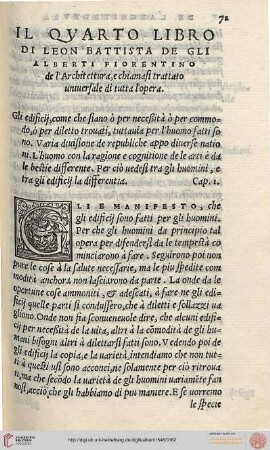 71
IL QVARTO LIBRO
DI LEON BATTISTA DE GLI
ALBERTI FIORENTINO
de l'Architettura, e chiamasi trattato
vniuersale di tutta l'opera.
Gli edificij, come che siano ò per necessità ò per commo-
do, ò per diletto trouati, tuttauia per l'huomo fatti so
no. Varia diuisione de republiche appo diuerse natio
ni. L'huomo con la ragione e cognitione de le arti è da
le bestie differente. Per ciò vedesi tra gli huomini, e
tra gli edificij la differentia. Cap. I.
GLI E MANIFESTO, che
gli edificij sono fatti per gli huomini.
Per che gli huomini da principio tal
opera per difendersi da le tempestà co
minciarono à fare. Seguirono poi non
pure le cose à la salute necessarie, ma le piu spedite com
modità anchora non lasciarono da parte. La onde da le
oportune cose ammoniti, & adescati, à fare ne gli edi-
ficij quelle parti si condussero, che à diletti e sollazzi ua
gliono. Onde non fia sconueneuole dire, che alcuni edi-
ficij per necessità de la uita, altri à la cōmodità de gli hu
mani bisogni altri à dilettarsi fatti sono. Vedendo poi de
gli edificij la copia, e la uarietà, intendiamo che non tut-
ti à questi usi sono acconci, ne solamente per ciò ritroua
ti, ma che secōdo la uarietà de gli huomini uariamēte fan
nosi, acciò che gli habbiamo di piu maniere. E se uorremo
le specie